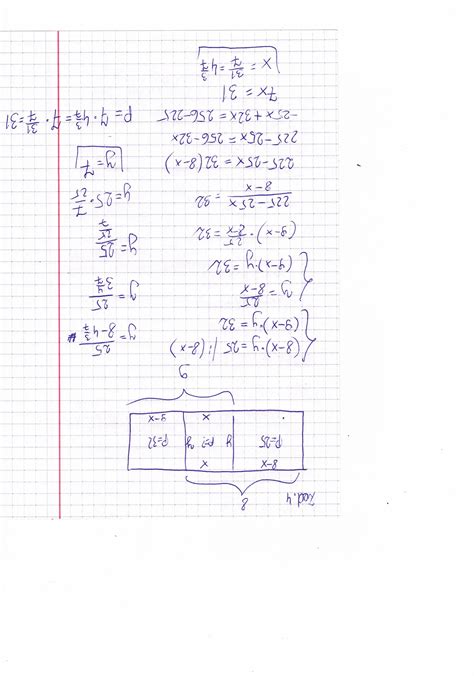 Zad. 4
8
8-x
x
P=25
y
P=?
y
P=32
x
9-x
9
(8-x)·y = 25 |:(8-x)
(9-x)·y = 32
y = 25/(8-x)
(9-x)·y = 32
(9-x)·25/(8-x) = 32
(225-25x)/(8-x) = 32
225-25x = 32(8-x)
225-25x = 256-32x
-25x+32x = 256-225
7x = 31
x = 31/7 = 4 3/7
y = 25/(8-4 3/7)
y = 25/(3 4/7)
y = 25/(25/7)
y = 25·7/25
y = 7
P = 7·4 3/7 = 7·31/7 = 31